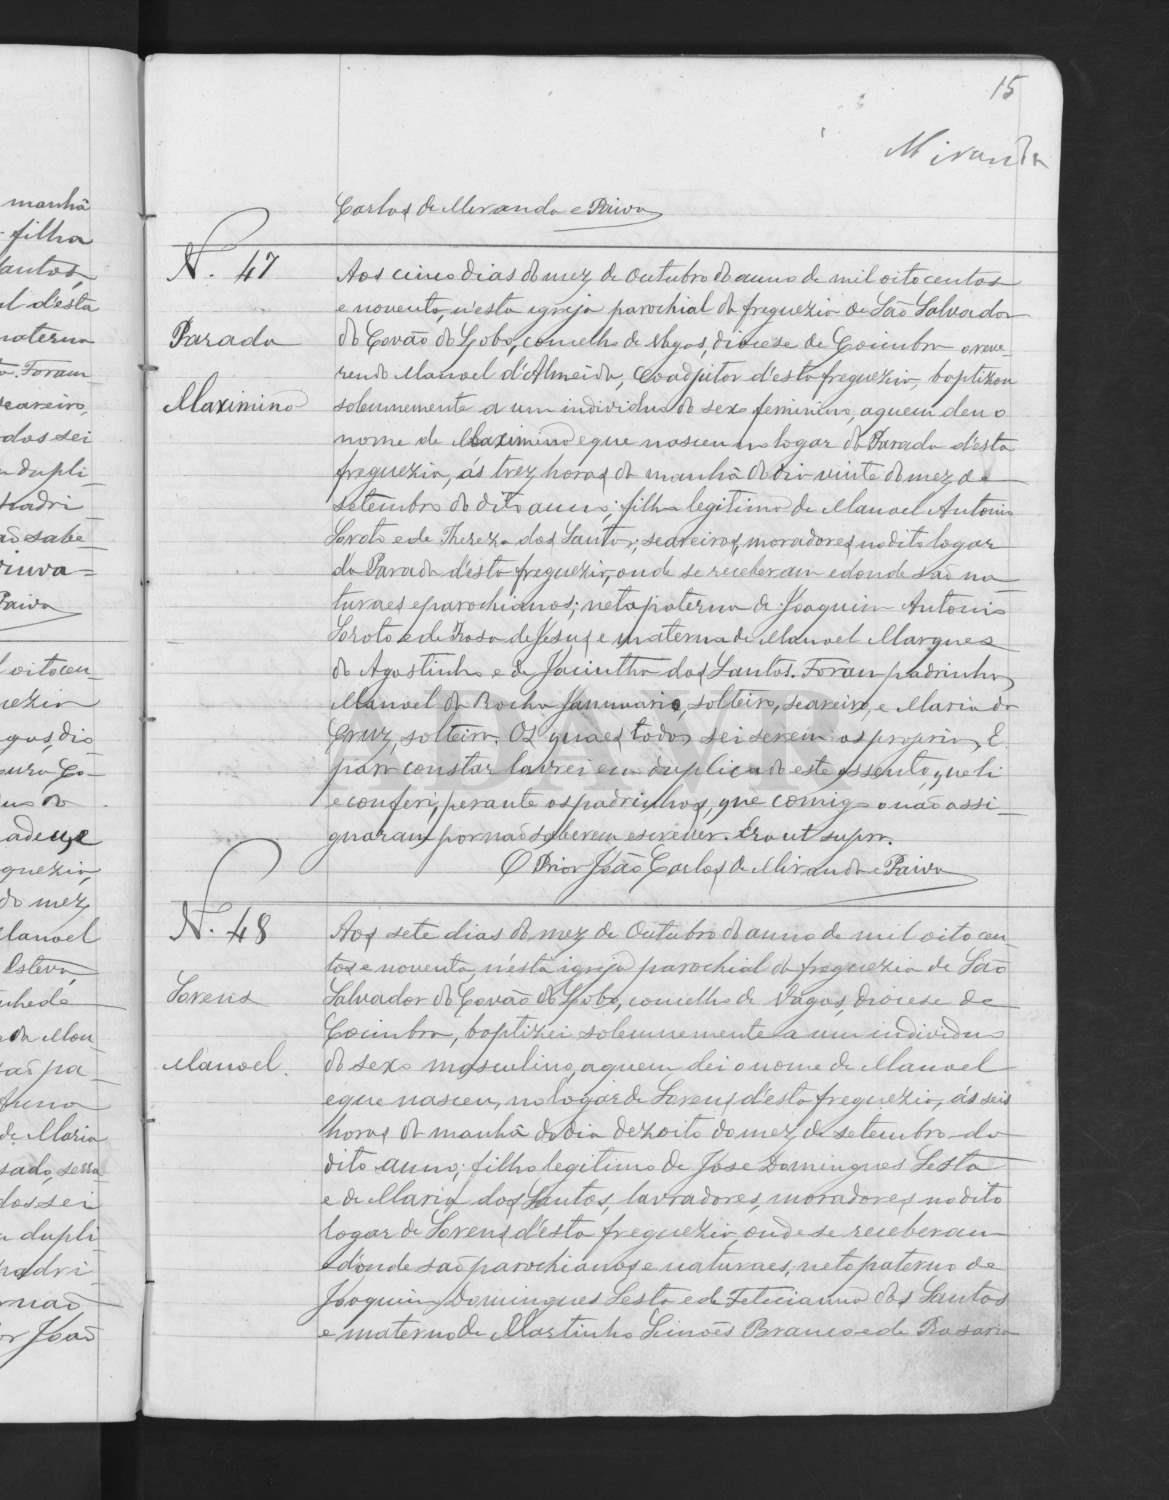 15
Miranda
Carlos de Miranda e Paiva
N. 47
Parada
Maximina
Aos cinco dias do mez de Outubro do anno de mil oito centos
e noventa, n'esta igreja parochial da freguezia de São Salvador
do Covão do Lobo, concelho de Vagos, diocese de Coimbra o reve-
rendo Manoel d'Almeida, Coadjutor d'esta freguezia, baptizou
solemnemente a um individuo do sexo feminino, a quem deu o
nome de Maximina e que nasceu no logar da Parada d'esta
freguezia, ás trez horas da manhã do dia vinte do mez de
setembro do dito anno; filha legitima de Manoel Antonio
Loroto e de Thereza dos Santos, seareiros, moradores no dito logar
da Parada d'esta freguezia, onde se receberam e donde são na
turaes e parochianos; neta paterna de Joaquim Antonio
Loroto e de Rosa de Jesus e materna de Manoel Marques
do Agostinho e de Jacintha dos Santos. Foram padrinhos
Manoel da Rocha Januario, solteiro, seareiro, e Maria da
Cruz, solteira. Os quaes todos sei serem os proprios. E
para constar lavrei em duplicado este assento, que li
e conferi, perante os padrinhos, que comigo o não assi-
gnaram por não saberem escrever. Era ut supra.
O Prior João Carlos de Miranda e Paiva
N. 48
Lorens
Manoel.
Aos sete dias do mez de Outubro do anno de mil oito cen-
tos e noventa, n'esta igreja parochial da freguezia de São
Salvador do Covão do Lobo, concelho de Vagos, diocese de
Coimbra, baptizei solemnemente a um individuo
do sexo masculino, a quem dei o nome de Manoel
e que nasceu, no logar de Lorens d'esta freguezia, ás seis
horas da manhã do dia dezoito do mez de setembro do
dito anno; filho legitimo de Jose Domingues Lesta
e de Maria dos Santos, lavradores, moradores no dito
logar de Lorens d'esta freguezia, onde se receberam
e d'onde são parochianos e naturaes; neto paterno de
Joaquim Domingues Lesta e de Feliciana dos Santos
e materno de Martinho Simões Branco e de Rosaria
manhã
filha
antos,
l d'esta
materna
Foram
seareiro,
dos sei
dupli-
padri
não sabe-
Paiva
oitocen-
uezia
gos, dio
guezia
do mez
Manoel
Esteva,
da Mon-
pa-
de Maria
dos sei
dupli-
padri-
não
or João
ADAVR